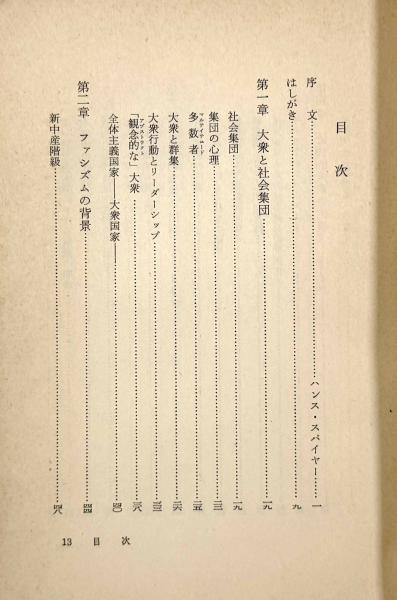 目次
序文……ハンス・スパイヤー……一
はしがき……九
第一章 大衆と社会集団……一九
社会集団……一九
集団の心理……
多数者……二五
大衆と群集……二六
大衆行動とリーダーシップ……
アブストラクト
「観念的な」大衆……三八
全体主義国家――大衆国家――……四〇
第二章 ファシズムの背景……四四
新中産階級……四八
13 目次